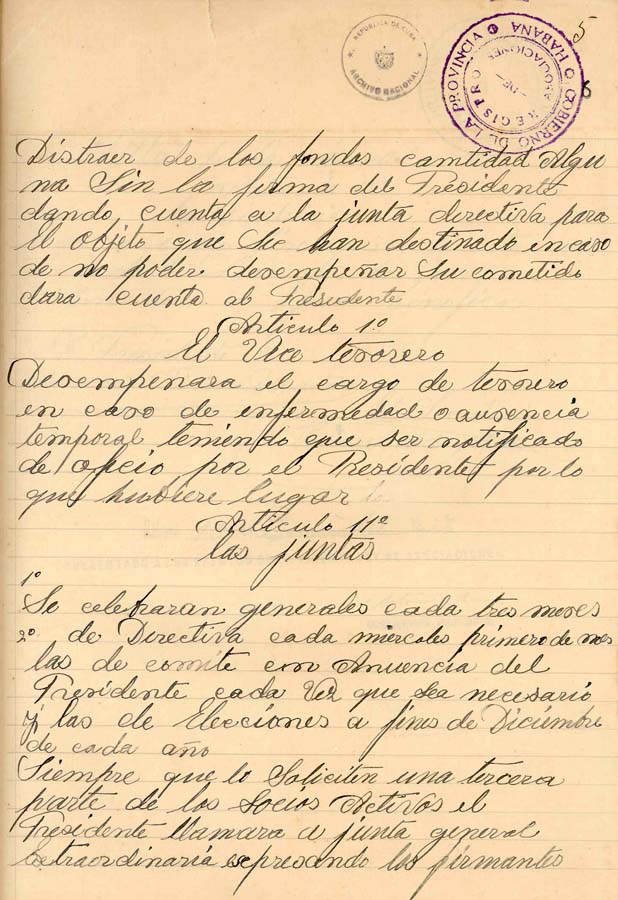 5
6
REPUBLICA DE CUBA
ARCHIVO NACIONAL
GOBIERNO DE LA PROVINCIA
HABANA
REGISTRO
DE
ASOCIACIONES
Distraer de los fondos cantidad Algu
na Sin la firma del Presidente
dando cuenta a la junta directiva para
El objeto que Se han destinado en caso
de no poder desempeñar Su cometido
dara cuenta al Presidente
Articulo 1º
El Vice tesorero
Desempenara el cargo de tesorero
en caso de enfermedad o ausencia
temporal teniendo que ser notificado
de oficio por el Presidente por lo
que hubiere lugar
Articulo 11º
las juntas
1º
Se celebraran generales cada tres meses
2º de Directiva cada miercoles primero de mes
las de comite con Anuencia del
Presidente cada Vez que sea necesario
y las de Elecciones a fines de Diciembre
de cada año
Siempre que lo Soliciten una tercera
parte de los Socios Activos el
Presidente llamara a junta general
extraordinaria expresando los firmantes